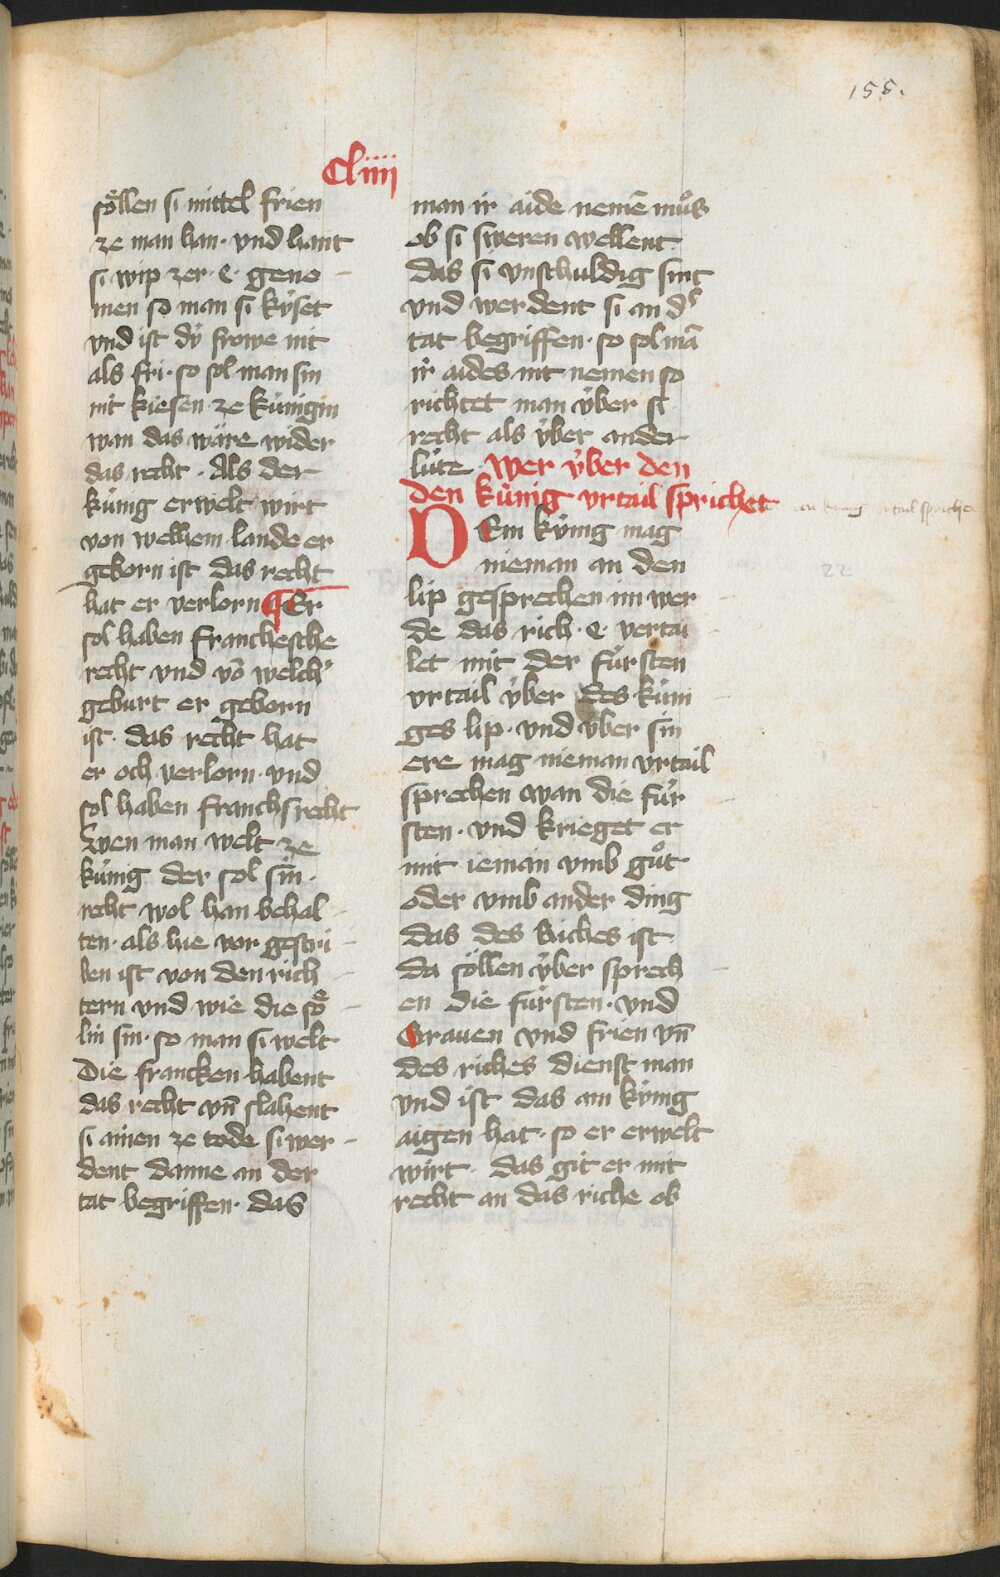 155.
Cliiii
soͤllen si mittel frien
ze man han · vnd hant
si wip zer · e · geno
men so man si kyͤset
vnd ist dyͤ frowe nit
als fri · so sol man sin
nit kiesen ze kuͤnigin
wan das waͤre wider
das recht · Als der
kuͤnig erwelt wirt
von welhem lande er
geborn ist das recht
hat er verlorn ¶ Er
sol haben franckesche
recht vnd vō welch'
geburt er geborn
ist · das recht hat
er och verlorn · vnd
sol haben franchs recht
Wen man welt ze
kuͤnig der sol sin ·
recht wol han behal
ten · als hie vor geschri
ben ist von den rich
tern vnd wie die soͤ
lin sin · so man si welt
Die francken habent
das recht vn̄ slahent
si ainen ze tode si wer
dent danne an der
tat begriffen · das
man ir aide nemē muͦs
ob si sweren wellent
das si vnschuldig sint
vnd werdent si an d'
tat begriffen · so sol mā
ir aides nit nemen so
richtet man yͤber si
recht als yͤber ander
luͤte · Wer yͤber den
den kuͤnig vrtail sprichet
DEm kyͤnig mag
nieman an den
lip gesprechen im wer
de das rich · e · vertai
let mit der fuͤrsten
vrtail yͤber des kuͤni
ges lip · vnd yͤber sin
ere mag nieman vrtail
sprechen wan die fuͤr
sten · vnd krieget er
mit ieman vmb guͦt
oder vmb ander ding
das des riches ist
da soͤllen yͤber sprech
en die fuͤrsten · vnd
Grauen vnd frien vn̄
des riches dienst man
vnd ist das ain kyͤnig
aigen hat · so er erwelt
wirt · das git er mit
recht an das riche ob
22